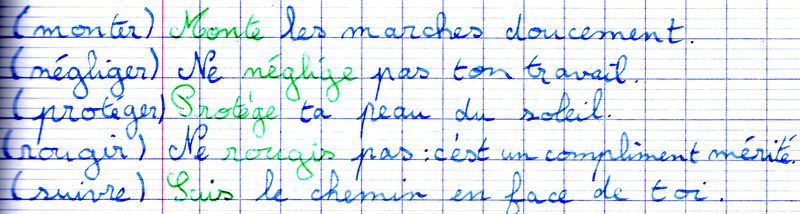 (monter) Monte les marches doucement.
(négliger) Ne néglige pas ton travail.
(protéger) Protège ta peau du soleil.
(rougir) Ne rougis pas : c'est un compliment mérité.
(suivre) Suis le chemin en face de toi.